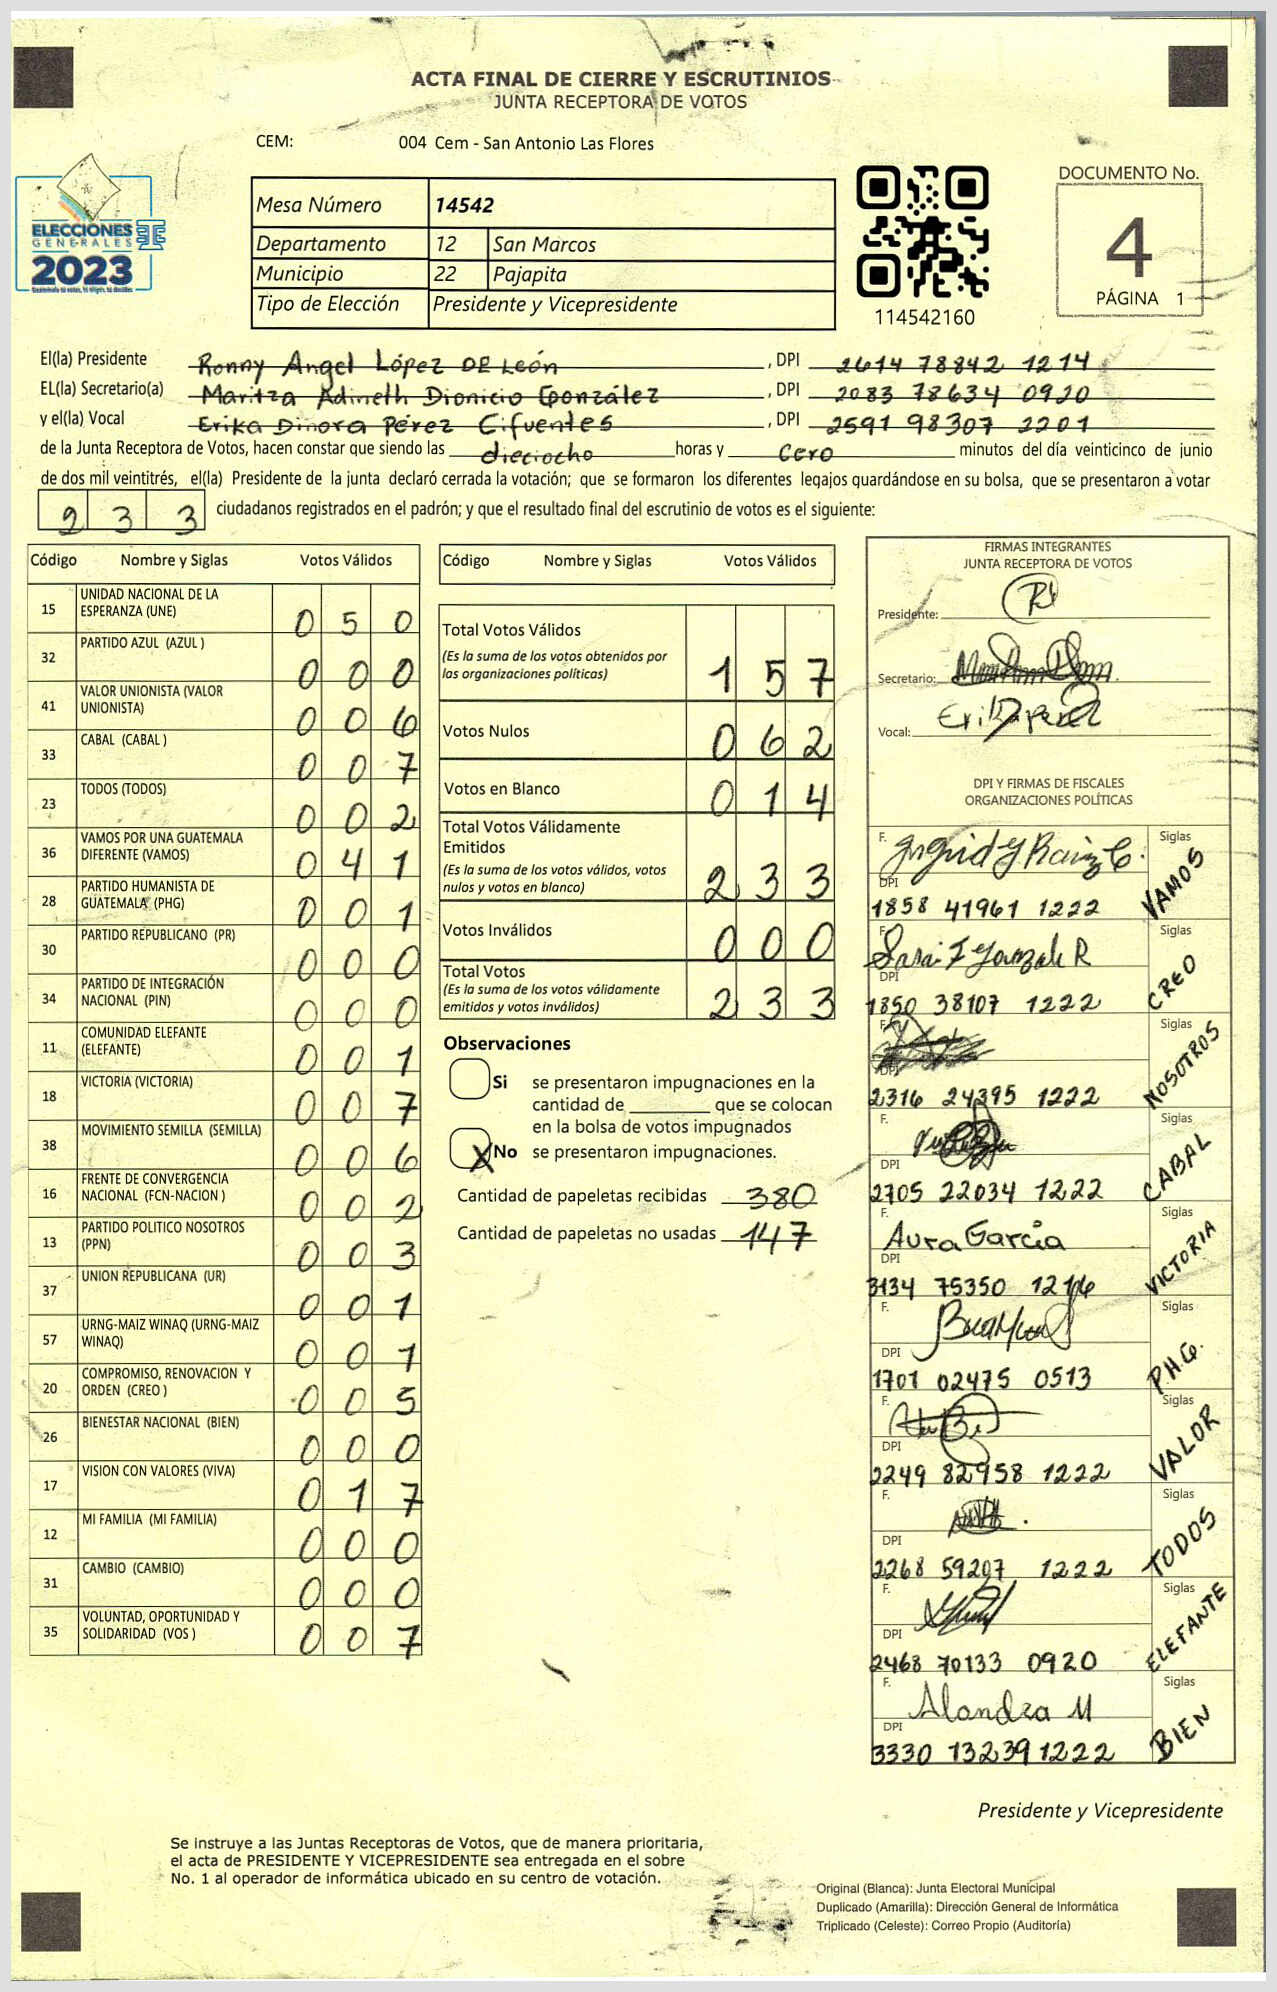 ACTA FINAL DE CIERRE Y ESCRUTINIOS
JUNTA RECEPTORA DE VOTOS
CEM: 004 Cem - San Antonio Las Flores
ELECCIONES
GENERALES
2023
Mesa Número 14542
Departamento 12 San Marcos
Municipio 22 Pajapita
Tipo de Elección Presidente y Vicepresidente
114542160
DOCUMENTO No.
4
PÁGINA 1
El(la) Presidente Ronny Angel López DE León , DPI 2614 78842 1214
EL(la) Secretario(a) Maritza Adineth Dionicio González , DPI 2083 78634 0920
y el(la) Vocal Erika Dinora Pérez Cifuentes , DPI 2591 98307 2201
de la Junta Receptora de Votos, hacen constar que siendo las dieciocho horas y cero minutos del día veinticinco de junio
de dos mil veintitrés, el(la) Presidente de la junta declaró cerrada la votación; que se formaron los diferentes legajos guardándose en su bolsa, que se presentaron a votar
2 3 3 ciudadanos registrados en el padrón; y que el resultado final del escrutinio de votos es el siguiente:
Código Nombre y Siglas Votos Válidos
15 UNIDAD NACIONAL DE LA
ESPERANZA (UNE) 0 5 0
32 PARTIDO AZUL (AZUL ) 0 0 0
41 VALOR UNIONISTA (VALOR
UNIONISTA) 0 0 6
33 CABAL (CABAL ) 0 0 7
23 TODOS (TODOS) 0 0 2
36 VAMOS POR UNA GUATEMALA
DIFERENTE (VAMOS) 0 4 1
28 PARTIDO HUMANISTA DE
GUATEMALA (PHG) 0 0 1
30 PARTIDO REPUBLICANO (PR) 0 0 0
34 PARTIDO DE INTEGRACIÓN
NACIONAL (PIN) 0 0 0
11 COMUNIDAD ELEFANTE
(ELEFANTE) 0 0 1
18 VICTORIA (VICTORIA) 0 0 7
38 MOVIMIENTO SEMILLA (SEMILLA) 0 0 6
16 FRENTE DE CONVERGENCIA
NACIONAL (FCN-NACION ) 0 0 2
13 PARTIDO POLITICO NOSOTROS
(PPN) 0 0 3
37 UNION REPUBLICANA (UR) 0 0 1
57 URNG-MAIZ WINAQ (URNG-MAIZ
WINAQ) 0 0 1
20 COMPROMISO, RENOVACION Y
ORDEN (CREO ) 0 0 5
26 BIENESTAR NACIONAL (BIEN) 0 0 0
17 VISION CON VALORES (VIVA) 0 1 7
12 MI FAMILIA (MI FAMILIA) 0 0 0
31 CAMBIO (CAMBIO) 0 0 0
35 VOLUNTAD, OPORTUNIDAD Y
SOLIDARIDAD (VOS ) 0 0 7
Código Nombre y Siglas Votos Válidos
Total Votos Válidos
(Es la suma de los votos obtenidos por
las organizaciones políticas) 1 5 7
Votos Nulos 0 6 2
Votos en Blanco 0 1 4
Total Votos Válidamente
Emitidos
(Es la suma de los votos válidos, votos
nulos y votos en blanco) 2 3 3
Votos Inválidos 0 0 0
Total Votos
(Es la suma de los votos válidamente
emitidos y votos inválidos) 2 3 3
Observaciones
Si se presentaron impugnaciones en la
cantidad de ________ que se colocan
en la bolsa de votos impugnados
X No se presentaron impugnaciones.
Cantidad de papeletas recibidas 380
Cantidad de papeletas no usadas 147
FIRMAS INTEGRANTES
JUNTA RECEPTORA DE VOTOS
Presidente:
Secretario:
Vocal: Erika perez
DPI Y FIRMAS DE FISCALES
ORGANIZACIONES POLÍTICAS
F. Siglas
DPI
1858 41961 1222 VAMOS
F. Siglas
DPI
1850 38107 1222 CREO
F. Siglas
DPI
2316 24395 1222 NOSOTROS
F. Siglas
DPI
2705 22034 1222 CABAL
F. Aura García Siglas
DPI
3134 75350 VICTORIA
F. Siglas
DPI
1701 02475 0513 P.H.G.
F. Siglas
DPI
2249 82958 1222 VALOR
F. Siglas
DPI
2268 59207 1222 TODOS
F. Siglas
DPI
2468 70133 0920 ELEFANTE
F. Siglas
DPI
3330 13239 1222 BIEN
Presidente y Vicepresidente
Se instruye a las Juntas Receptoras de Votos, que de manera prioritaria,
el acta de PRESIDENTE Y VICEPRESIDENTE sea entregada en el sobre
No. 1 al operador de informática ubicado en su centro de votación.
Original (Blanca): Junta Electoral Municipal
Duplicado (Amarilla): Dirección General de Informática
Triplicado (Celeste): Correo Propio (Auditoría)